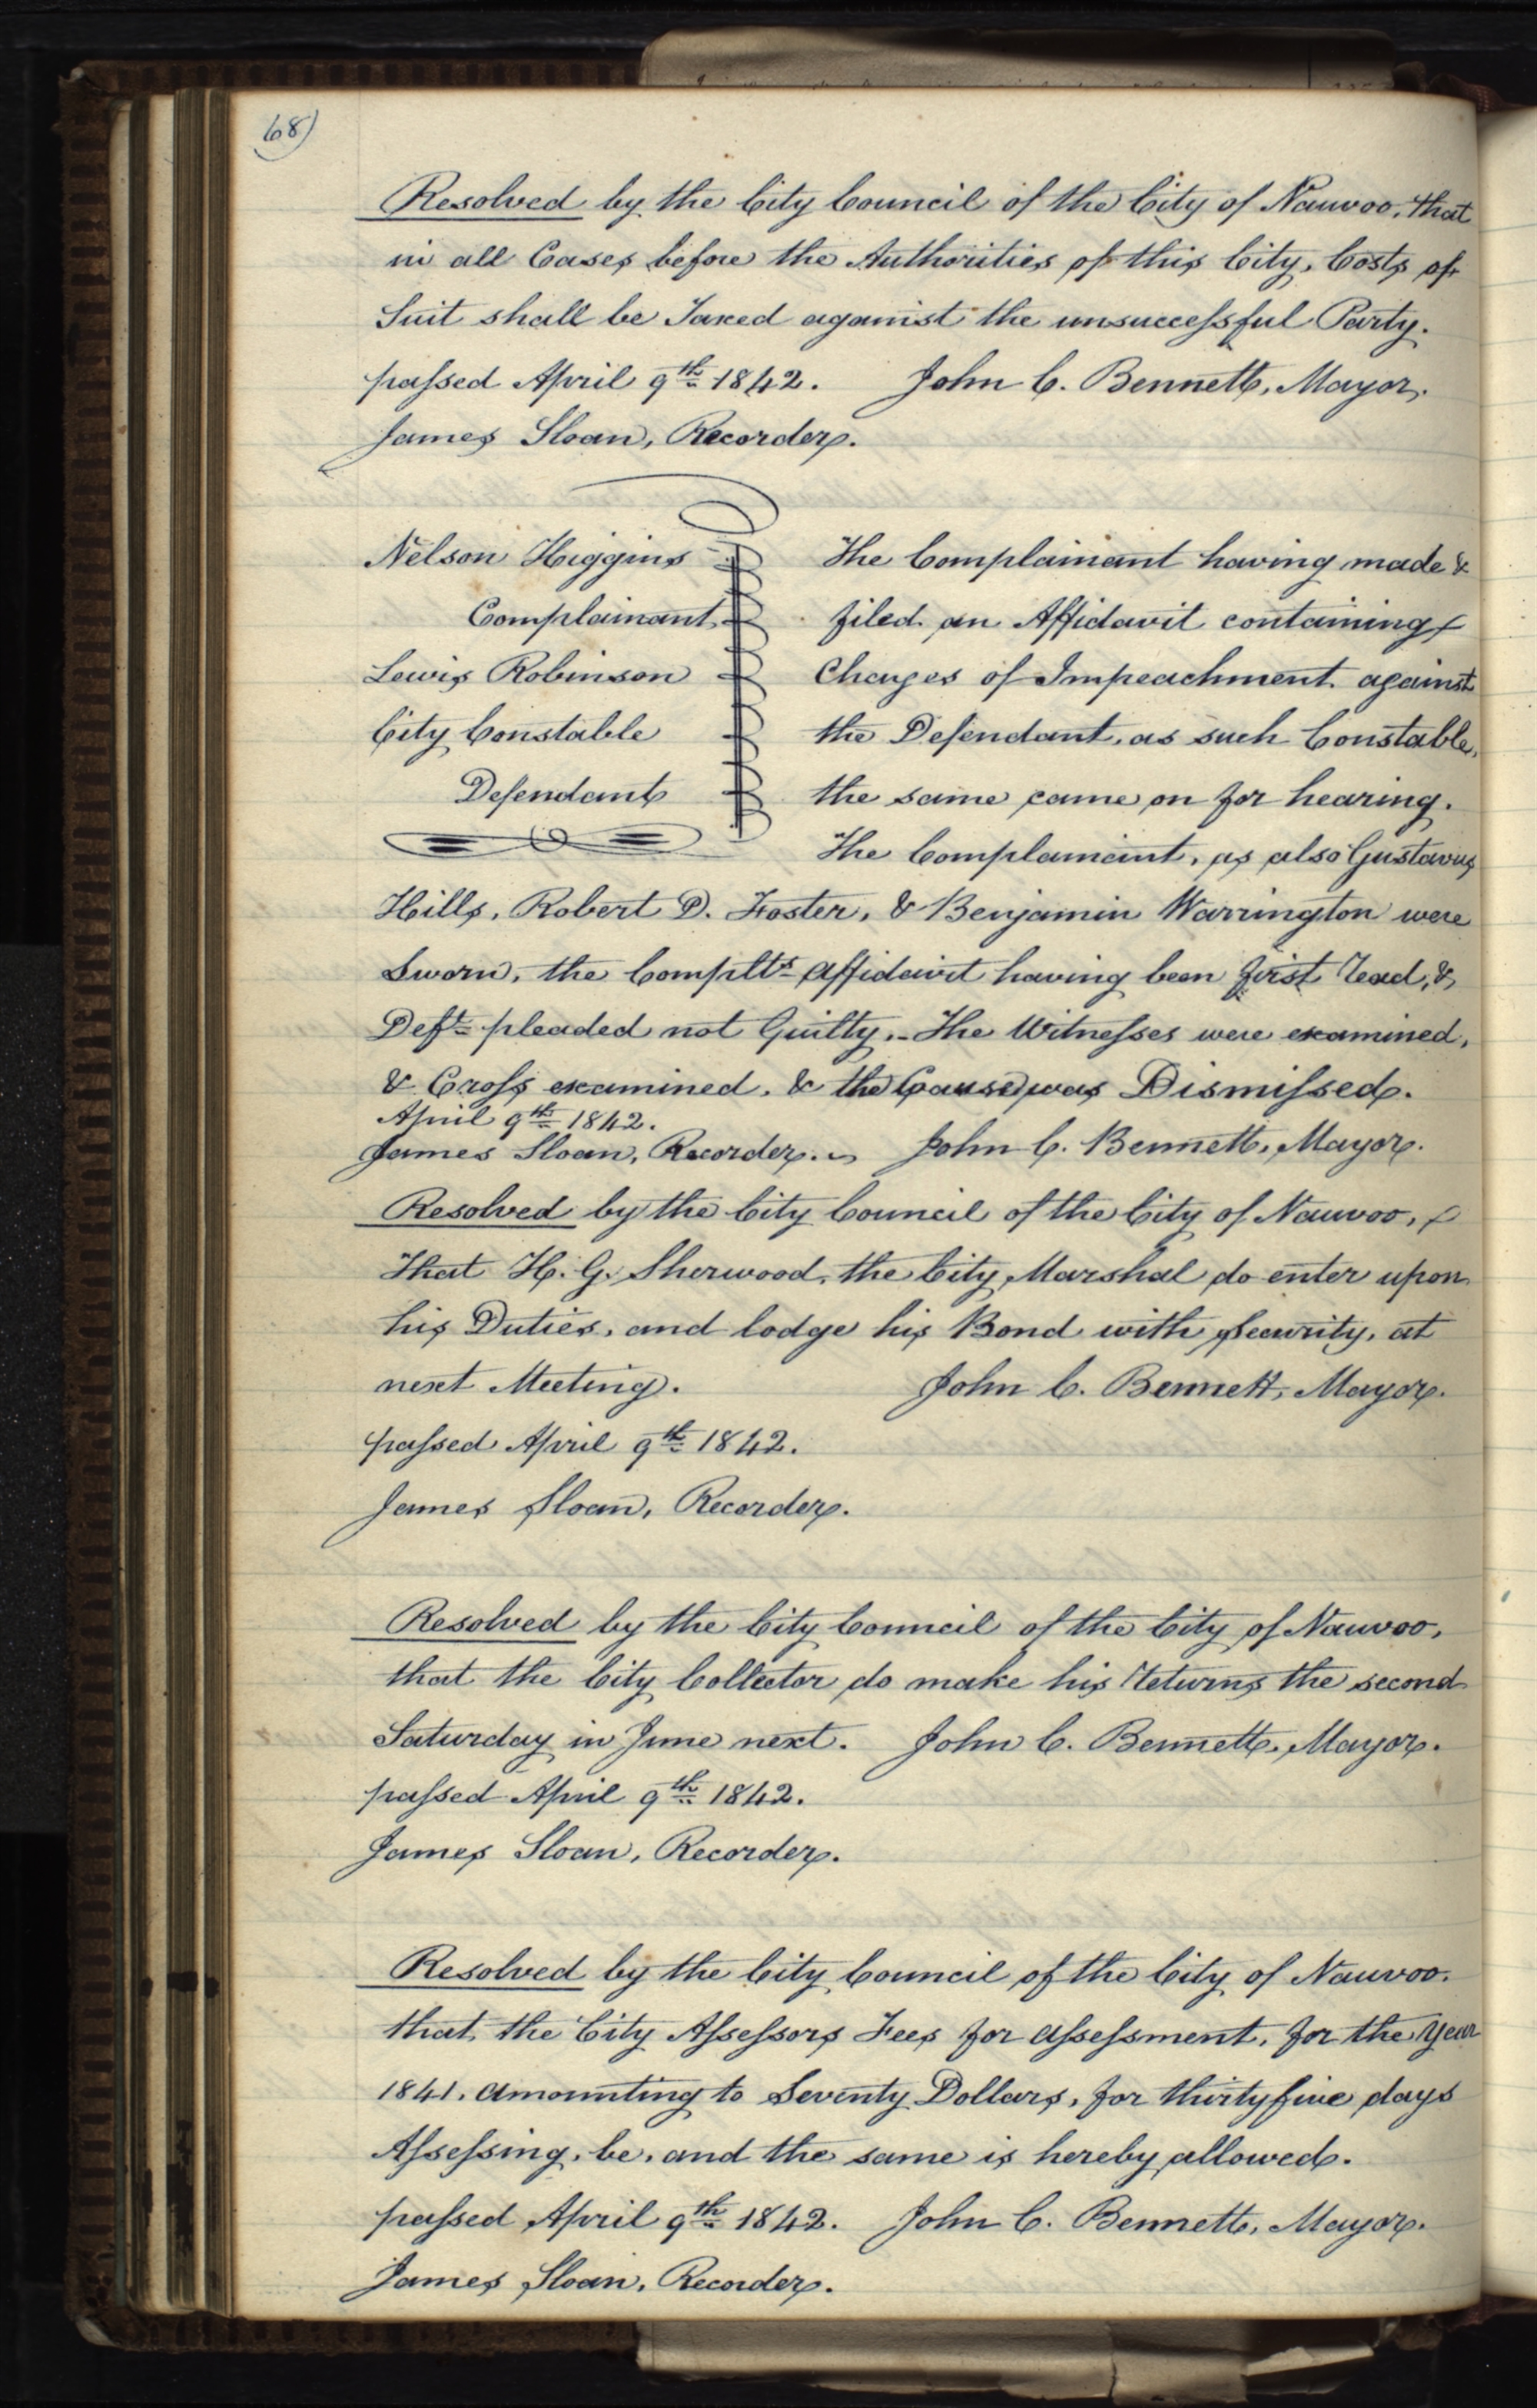 68)
Resolved by the City Council of the City of Nauvoo, that
in all Cases before the Authorities of this City, Costs of
Suit shall be Taxed against the unsuccessful Party.
passed April 9th 1842. John C. Bennett, Mayor.
James Sloan, Recorder.
Nelson Higgins
Complainant
Lewis Robinson
City Constable
Defendant
The Complainant having made &
filed an Affidavit containing
Charges of Impeachment against
the Defendant, as such Constable,
the same came on for hearing.
The Complainant, as also Gustavus
Hills, Robert D. Foster, & Benjamin Warrington were
Sworn, the Compltts affidavit having been first read, &
Deft pleaded not Guilty.- The Witnesses were examined,
& Cross examined, & the Cause was Dismissed.
April 9th 1842.
James Sloan, Recorder. John C. Bennett, Mayor.
Resolved by the City Council of the City of Nauvoo,
That H. G. Sherwood, the City Marshal do enter upon
his Duties, and lodge his Bond with Security, at
next Meeting. John C. Bennett, Mayor.
passed April 9th 1842.
James Sloan, Recorder.
Resolved by the City Council of the City of Nauvoo,
that the City Collector do make his Returns the second
Saturday in June next. John C. Bennett, Mayor.
passed April 9th 1842.
James Sloan, Recorder.
Resolved by the City Council of the City of Nauvoo.
that, the City Assessors Fees for assessment, for the Year
1841, amounting to Seventy Dollars, for thirtyfive days
Assessing, be, and the same is hereby allowed.
passed April 9th 1842. John C. Bennett, Mayor.
James Sloan, Recorder.